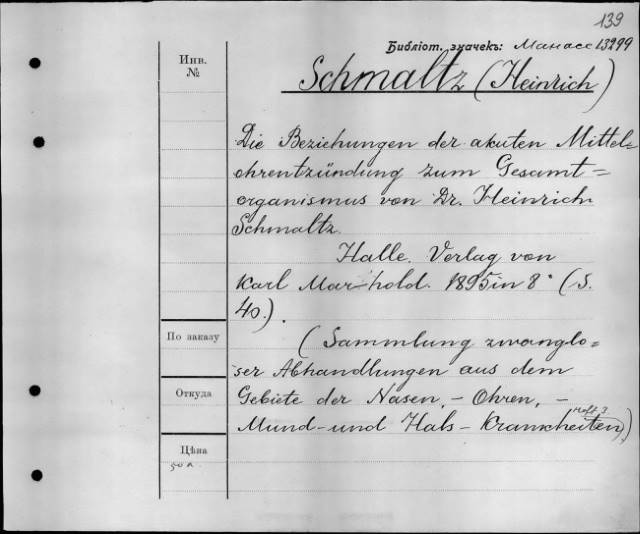 139
Библіот. значекъ: Манасс 13299
Инв.
№
Schmaltz (Heinrich)
Die Beziehungen der akuten Mittel=
ohrentzündung zum Gesamt=
organismus von Dr. Heinrich
Schmaltz.
Halle. Verlag von
Karl Marhold. 1895 in 8° (S.
40.).
По заказу
(Sammlung zwanglo=
ser Abhandlungen aus dem
Откуда
Gebiete der Nasen, - Ohren, -
Heft 3.
Mund- und Hals- Krankheiten,)
Цѣна